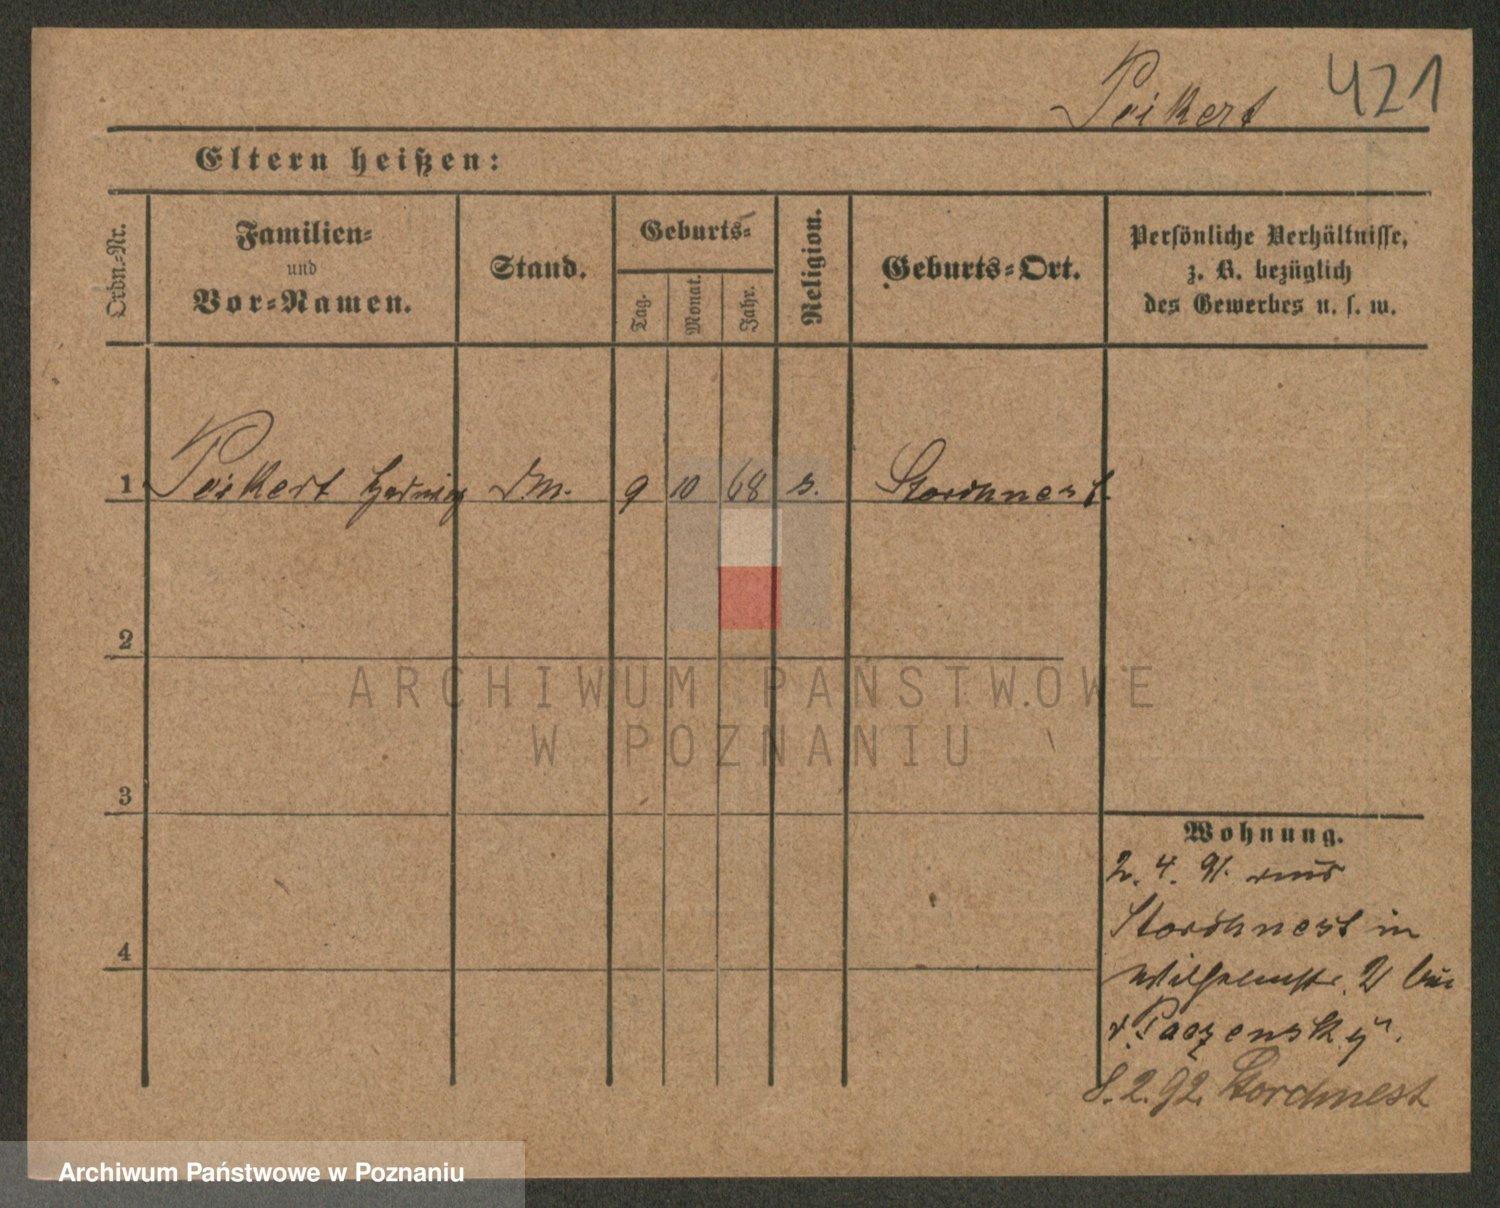 Peikert 421
Eltern heißen:
Ordn.-Nr.
Familien-
und
Vor-Namen.
Stand.
Geburts-
Tag.
Monat.
Jahr.
Religion.
Geburts-Ort.
Persönliche Verhältnisse,
z. B. bezüglich
des Gewerbes u. s. w.
1 Peikert Hedwig d.M. 9 10 68 Storchnest.
2
3
4
Wohnung.
2. 4. 91. aus
Storchnest in
Wilhelmstr. 2 bei
v. Paczensky.
8. 2. 92. Storchnest
ARCHIWUM PAŃSTWOWE
W POZNANIU
Archiwum Państwowe w Poznaniu